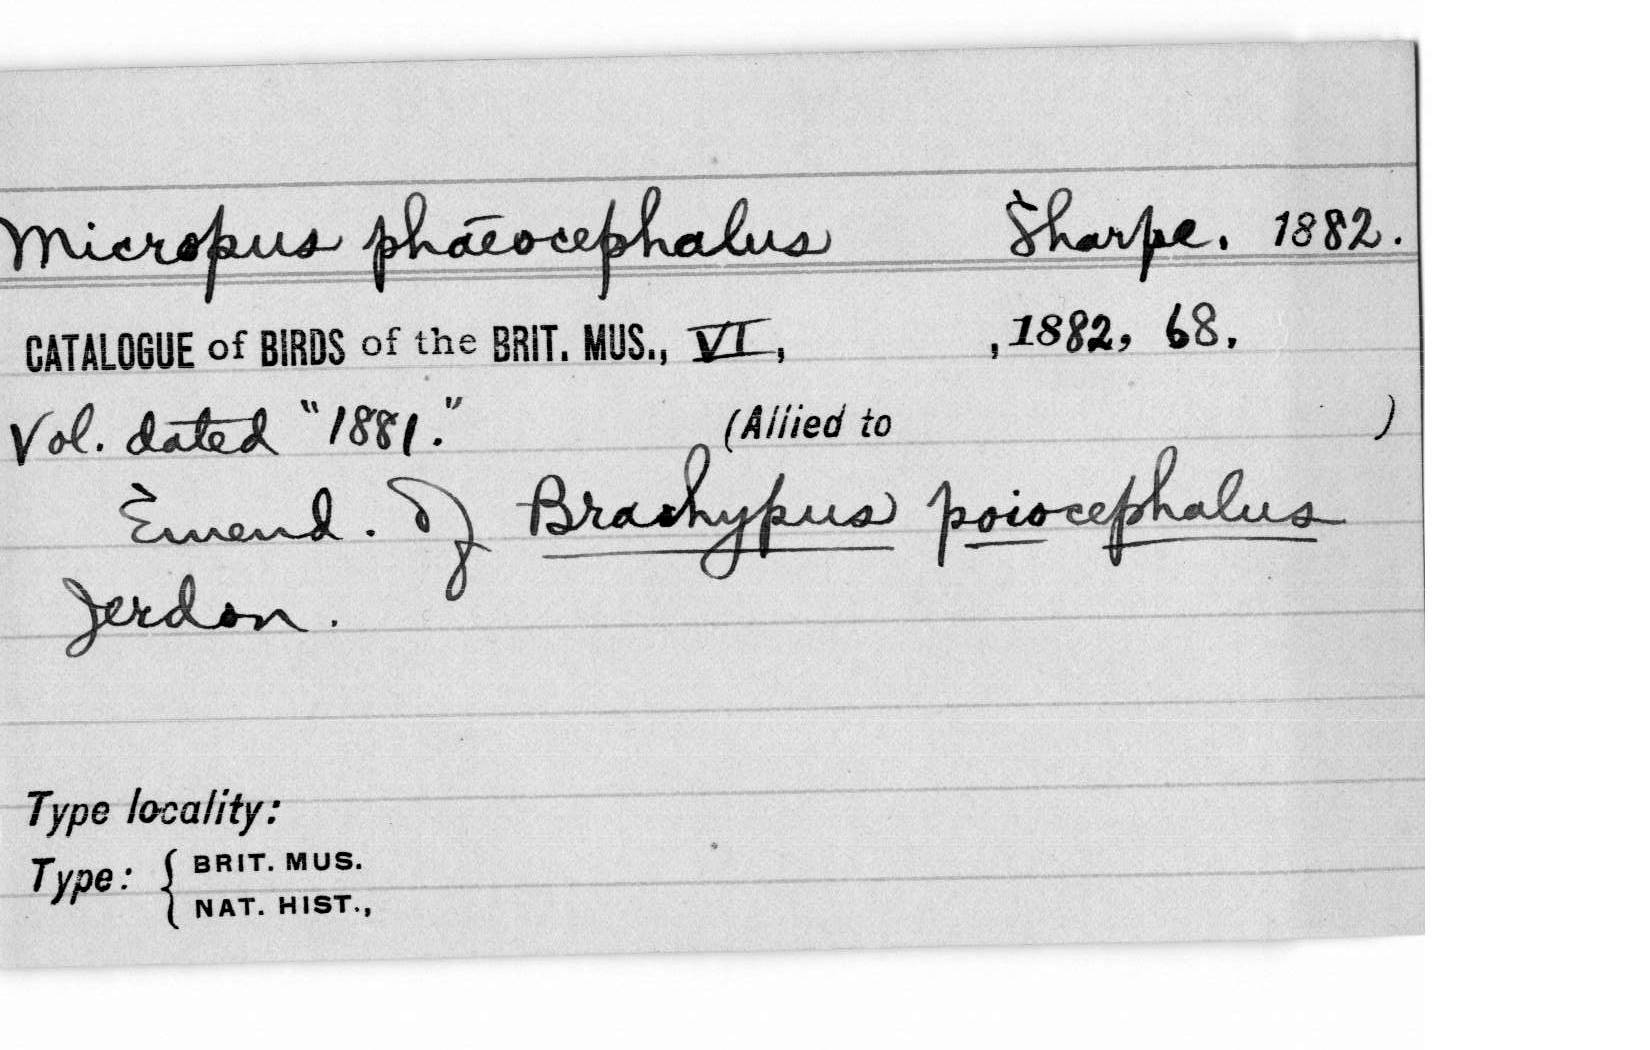 Micropus phaeocephalus Sharpe. 1882.
CATALOGUE of BIRDS of the BRIT. MUS., VI, , 1882, 68.
Vol. dated "1881." (Allied to )
Emend. of Brachypus poiocephalus
Jerdon.
Type locality:
Type: { BRIT. MUS.
NAT. HIST.,